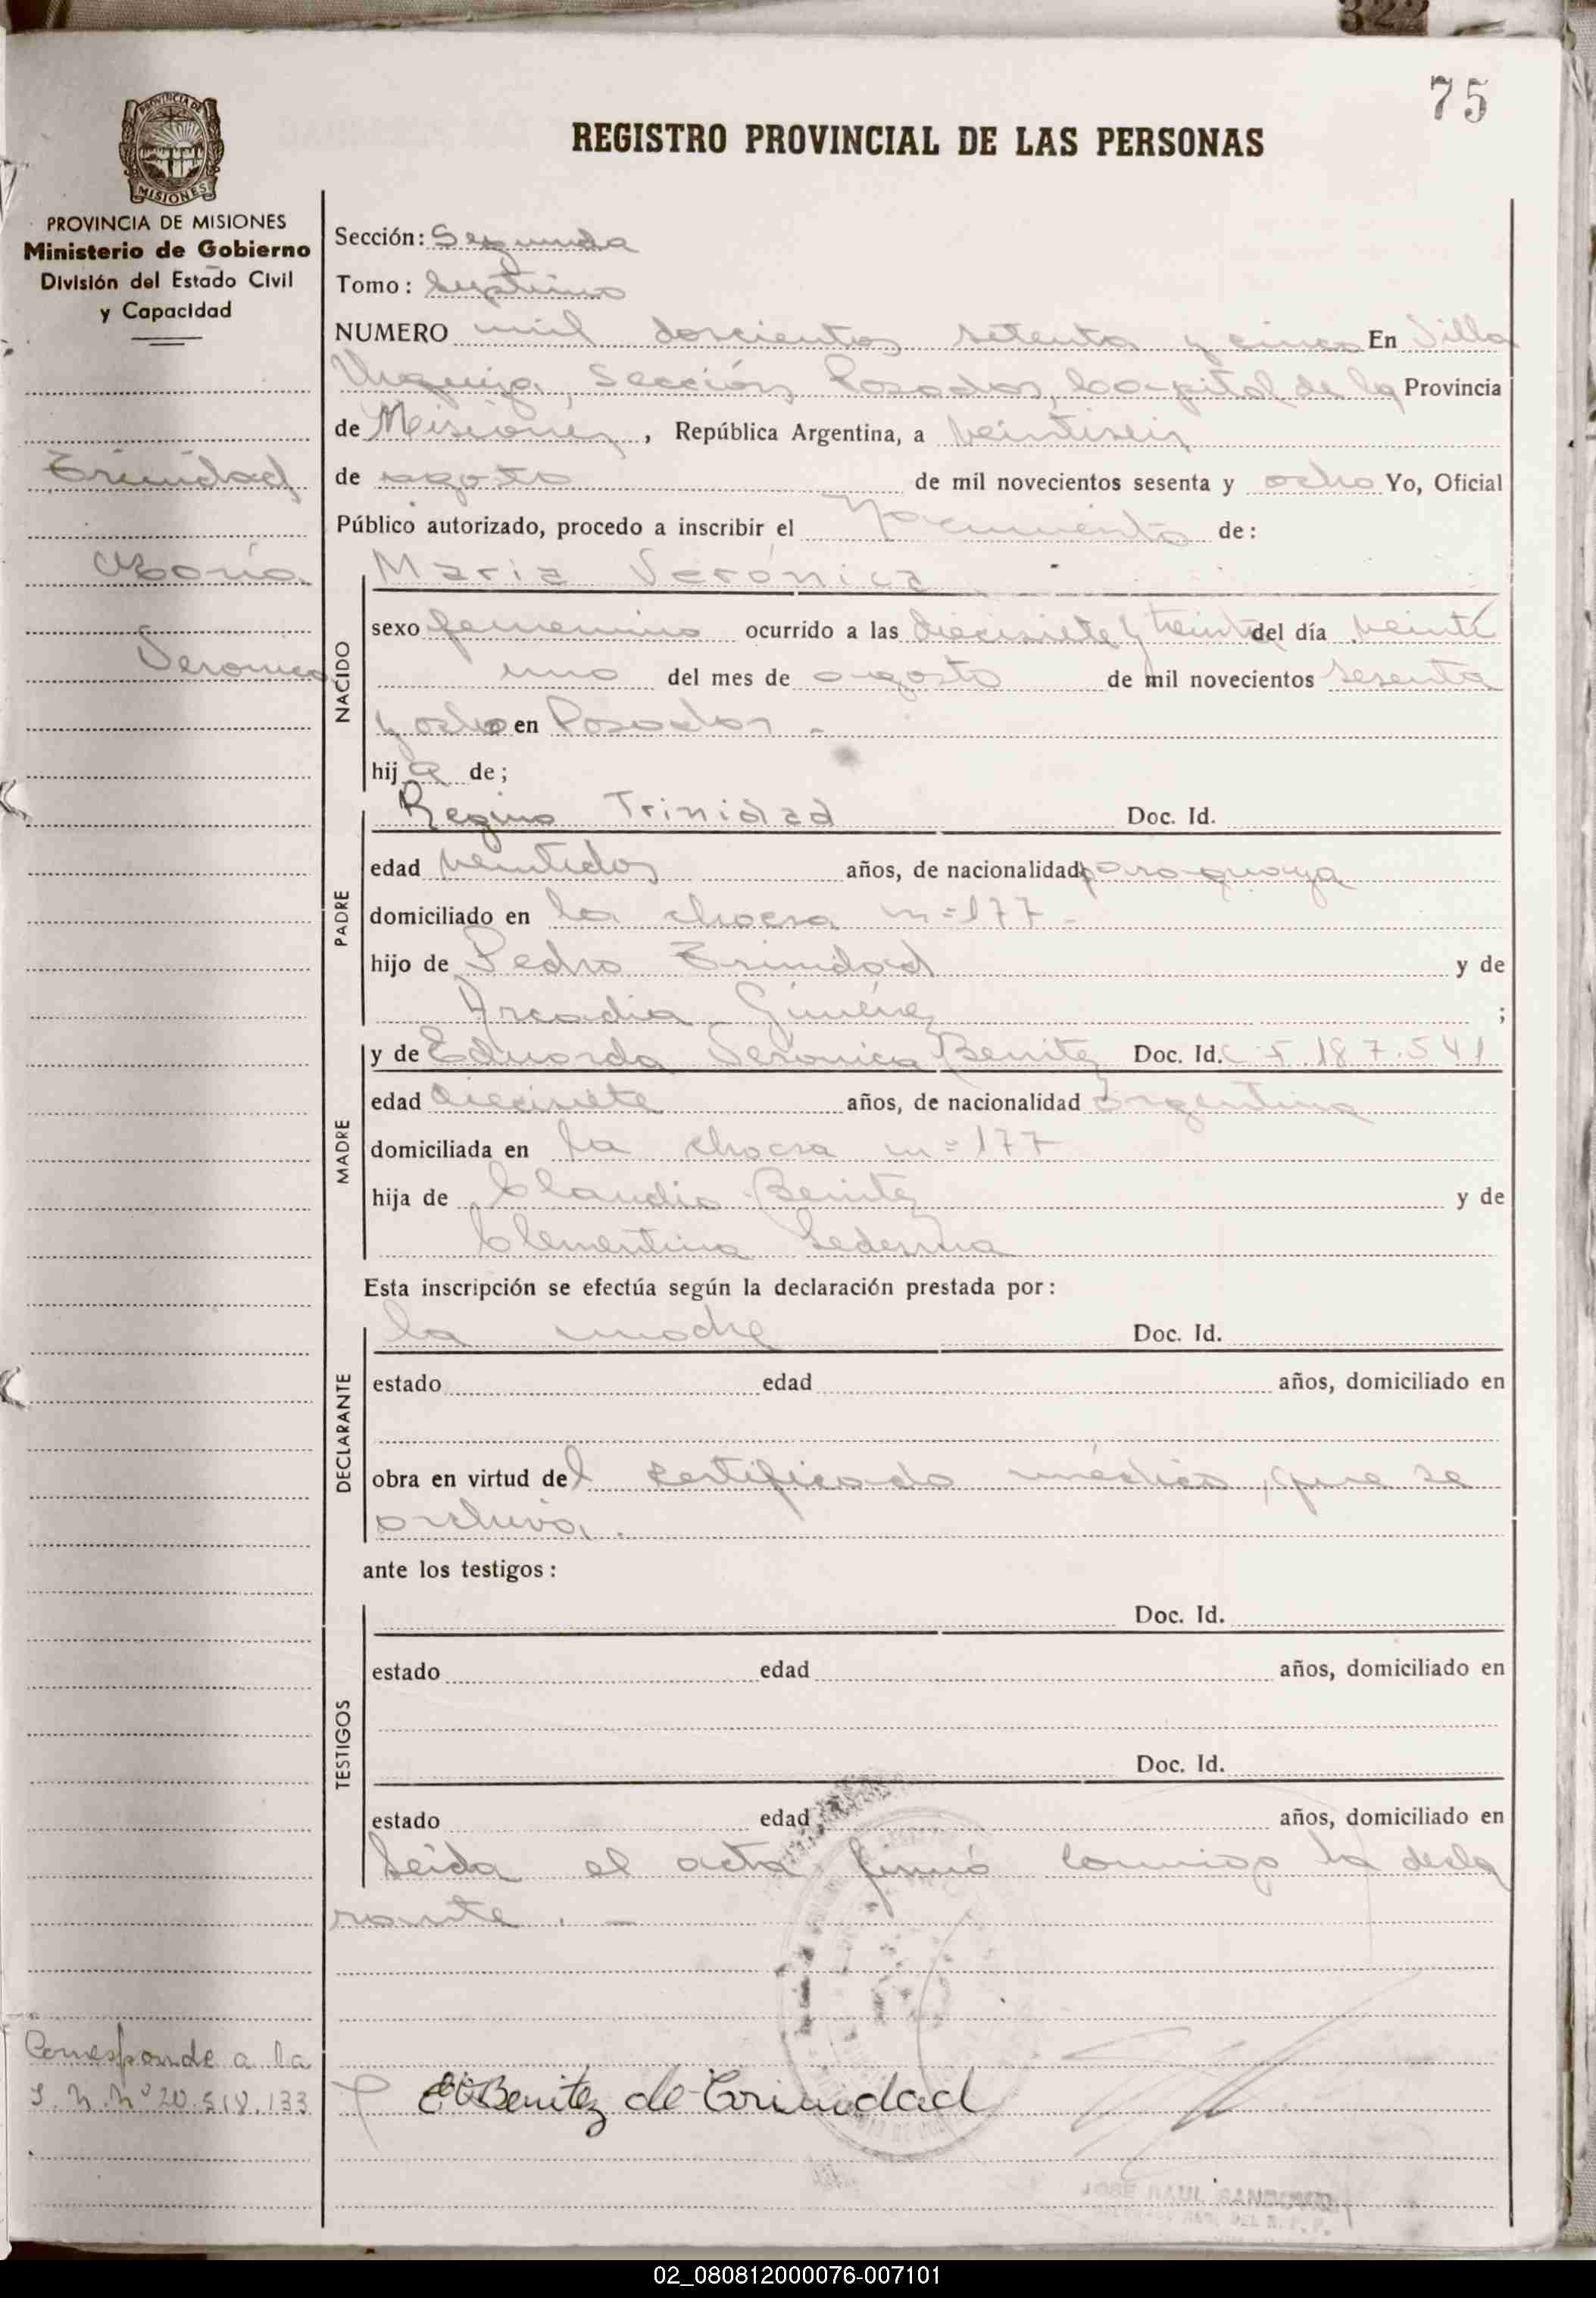 322
75
PROVINCIA DE
MISIONES
REGISTRO PROVINCIAL DE LAS PERSONAS
PROVINCIA DE MISIONES
Ministerio de Gobierno
División del Estado Civil
y Capacidad
Trinidad
María
Veronica
Sección: Segunda
Tomo: Septimo
NUMERO mil doscientos setenta y cinco En Villa
Urquiza, Sección Posadas, Capital de la Provincia
de Misiones, República Argentina, a veintiseis
de agosto de mil novecientos sesenta y ocho Yo, Oficial
Público autorizado, procedo a inscribir el Nacimiento de:
NACIDO
Maria Verónica
sexo femenino ocurrido a las diecisiete y treinta del día veinti
uno del mes de agosto de mil novecientos sesenta
y ocho en Posadas -
hija de;
PADRE
Regino Trinidad Doc. Id.
edad veintidos años, de nacionalidad paraguaya
domiciliado en la chacra n=177 -
hijo de Pedro Trinidad y de
Arcadia Giménez ;
MADRE
y de Eduarda Veronica Benitez Doc. Id. C 5.187.541
edad diecisiete años, de nacionalidad argentina
domiciliada en la chacra n=177
hija de Claudio Benitez y de
Clementina Ledesma
Esta inscripción se efectúa según la declaración prestada por:
DECLARANTE
la madre Doc. Id.
estado edad años, domiciliado en
obra en virtud del certificado médico, que se
archiva.
ante los testigos:
TESTIGOS
Doc. Id.
estado edad años, domiciliado en
Doc. Id.
estado edad años, domiciliado en
Leida el acta, firmó conmigo la decla
rante. -
Corresponde a la
I. N. Nº 20.518.133
E V Benitez de Trinidad
JOSE RAUL
02_080812000076-007101